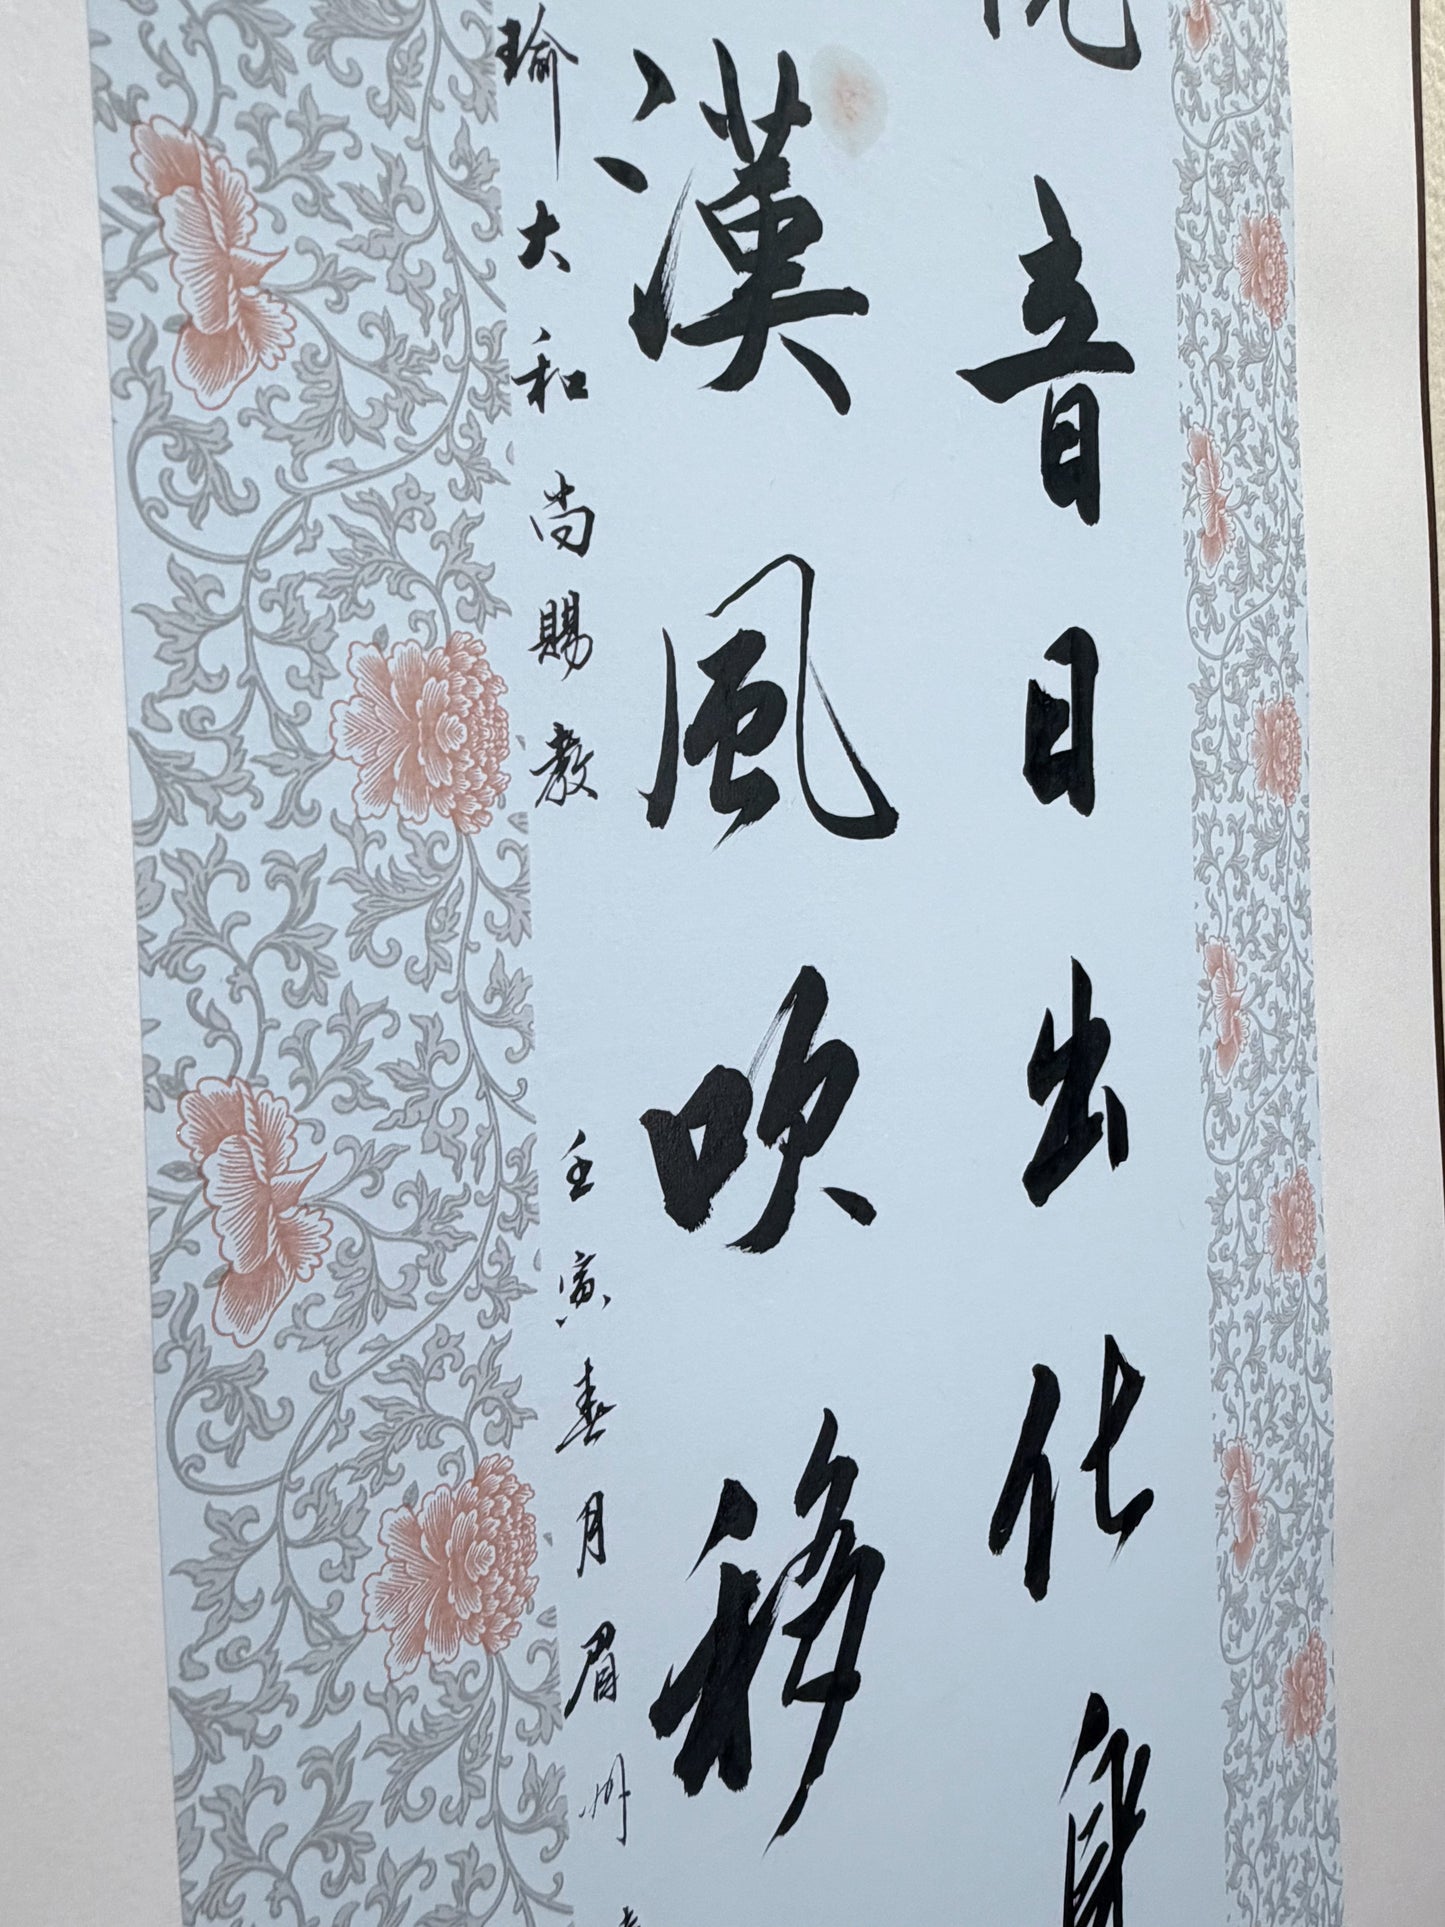 音日出化身
漢風吹移
瑜大和尚賜教
壬寅春月眉州